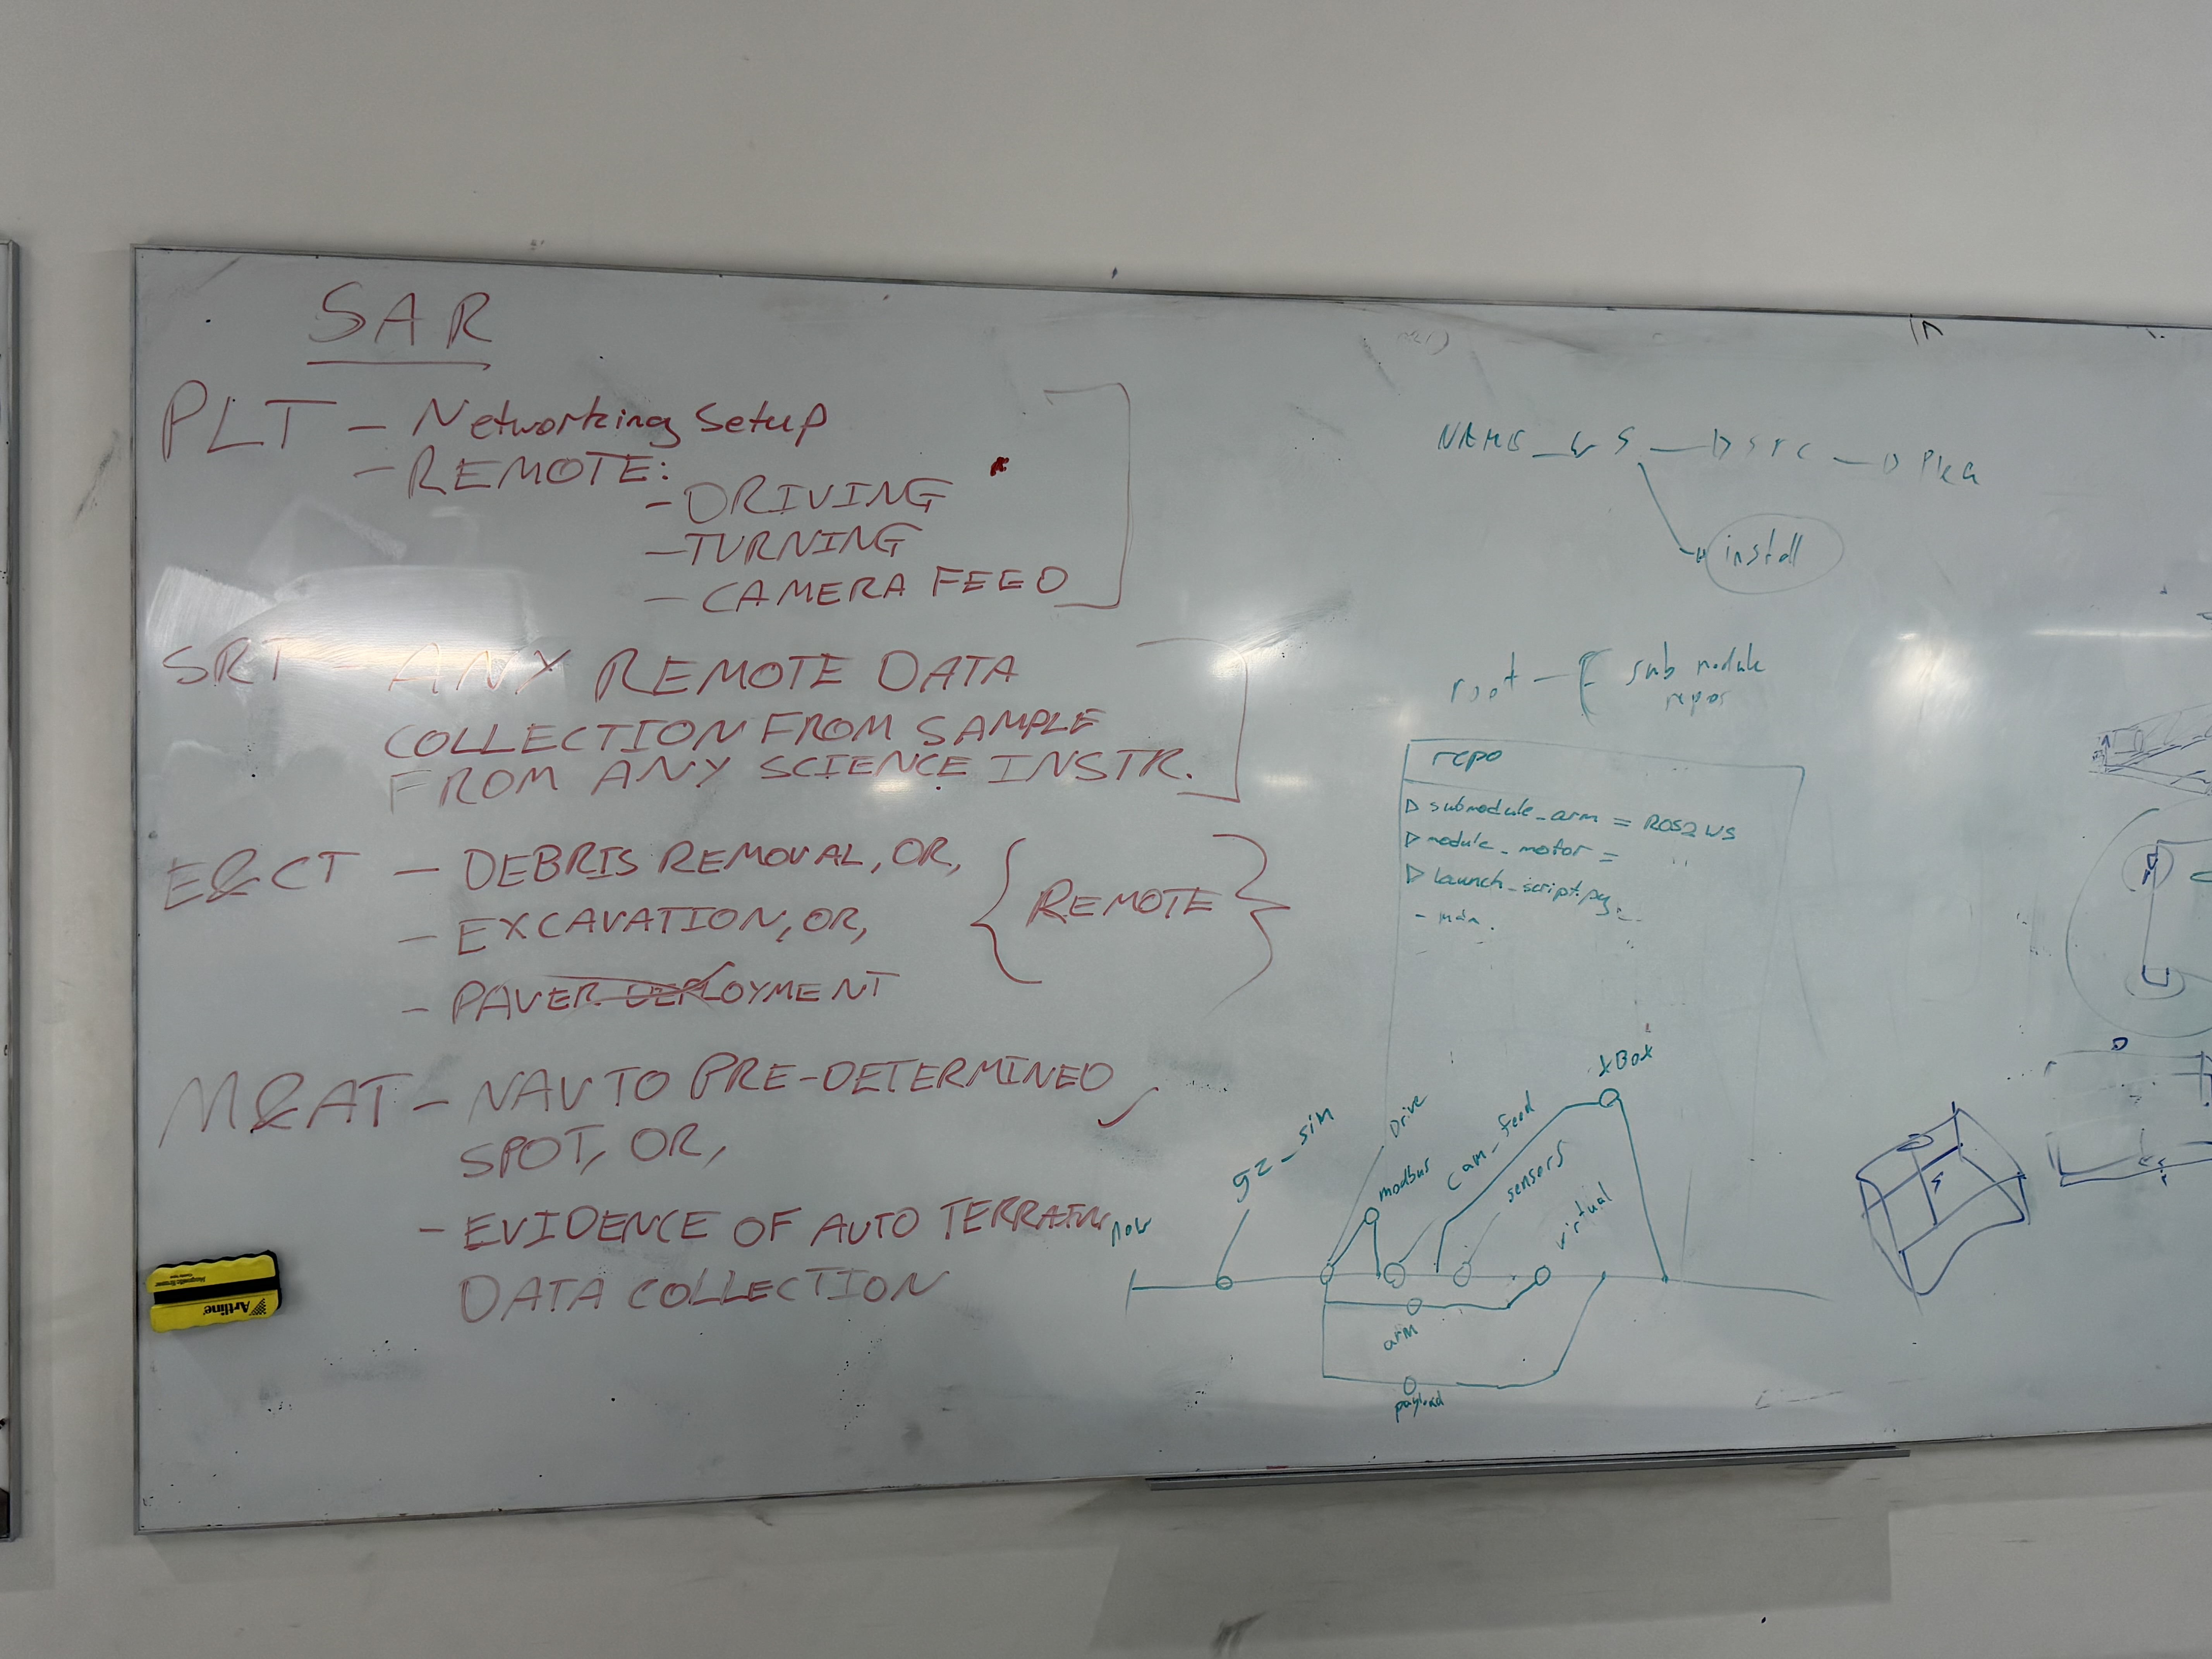 SAR
PLT - Networking Setup
- REMOTE:
- DRIVING
- TURNING
- CAMERA FEED
SRT - ANY REMOTE DATA
COLLECTION FROM SAMPLE
FROM ANY SCIENCE INSTR.
E&CT - DEBRIS REMOVAL, OR,
- EXCAVATION, OR,
- PAVER DEPLOYMENT
{ REMOTE }
M&AT - NAV TO PRE-DETERMINED
SPOT, OR,
- EVIDENCE OF AUTO TERRAIN
DATA COLLECTION
Artline
NAME_WS → src → pkg
install
root - [ sub module
repos
repo
▷ submodule_arm = ROS2 WS
▷ module_motor = "
▷ launch_script.py
now
gz_sim
Drive
modbus
cam_feed
sensors
virtual
xBox
arm
payload